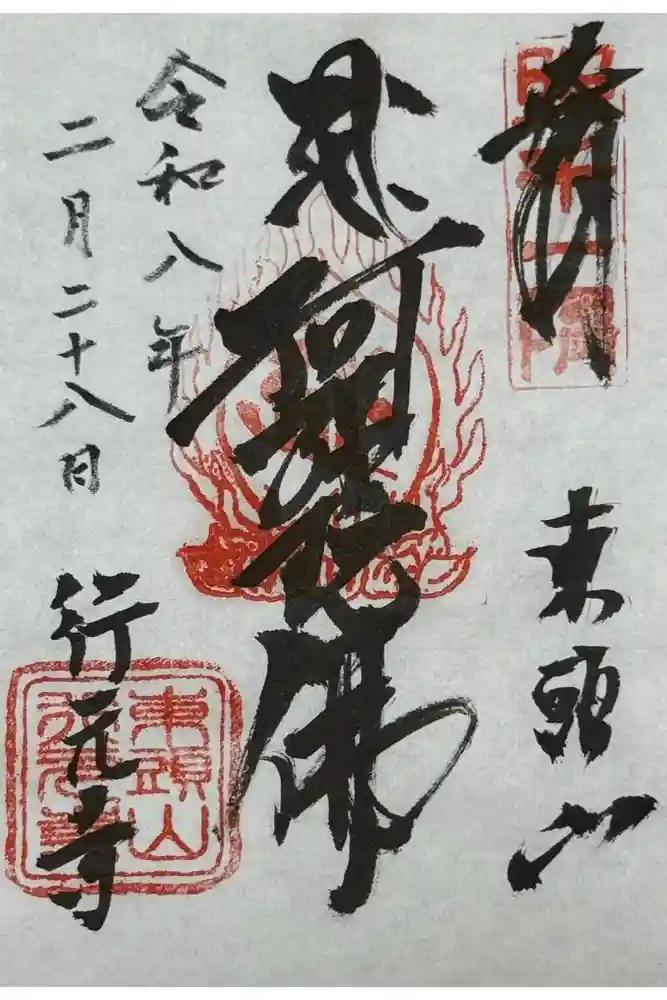 奉拝
照千一隅
東頭山
阿弥陀佛
令和八年
二月二十八日
行元寺
東頭山
行元寺